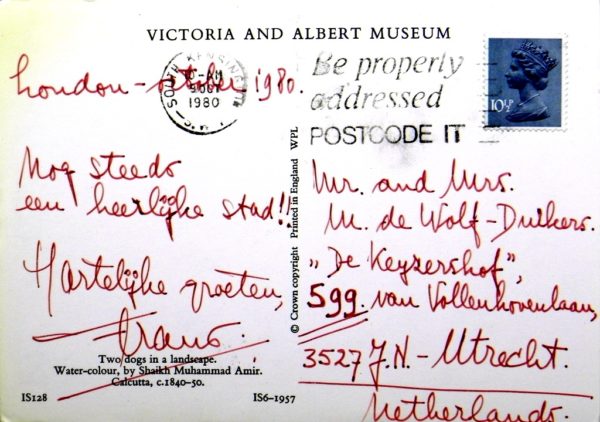 VICTORIA AND ALBERT MUSEUM
London - october 1980.
SOUTH KENSINGTON
10-AM
9 OCT
1980
Be properly
addressed
POSTCODE IT
10½P
Nog steeds
een heerlijke stad!!
Hartelijke groeten,
Frans.
Two dogs in a landscape.
Water-colour, by Shaikh Muhammad Amir.
Calcutta, c.1840-50.
IS128
IS6-1957
© Crown copyright Printed in England WPL
Mr. and Mrs.
M. de Wolf-Duikers.
„De Keyzershof",
599. van Vollenhovenlaan,
3527 J.N. - Utrecht.
Netherlands.